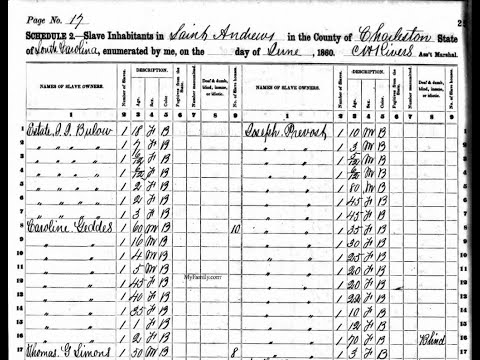 Page No. 17
SCHEDULE 2.—Slave Inhabitants in Saint Andrews in the County of Charleston State
of South Carolina, enumerated by me, on the day of June, 1860. Ass't Marshal.
NAMES OF SLAVE OWNERS. Number of Slaves. DESCRIPTION. Age. Sex. Color. Fugitives from the State. Number manumitted. Deaf & dumb, blind, insane, or idiotic. No. of Slave houses. NAMES OF SLAVE OWNERS. Number of Slaves. DESCRIPTION. Age. Sex. Color. Fugitives from the State. Number manumitted. Deaf & dumb, blind, insane, or idiotic. No. of Slave houses.
1 2 3 4 5 6 7 8 9 1 2 3 4 5 6 7 8 9
1 Estate Bulow 1 18 F B Joseph Prevost 1 10 M B 1
2 " " " 1 7 F B " " 1 3 M B 2
3 " " " 1 F B " " 1 M B 3
4 " " " 1 F B " " 1 M B 4
5 " " " 1 2 F B " " 1 80 M B 5
6 " " " 1 2 F B " " 1 45 F B 6
7 " " " 1 3 F B " " 1 45 F B 7
8 Caroline Geddes 1 60 M B 10 " " 1 35 F B 8
9 " " 1 16 M B " " 1 30 F B 9
10 " " 1 4 M B " " 1 25 F B 10
11 " " 1 5 M B " " 1 20 F B 11
12 " " 1 45 F B " " 1 25 F B 12
13 " " 1 40 F B " " 1 10 F B 13
14 " " 1 35 F B " " 1 F B 14
15 " " 1 1 F B " " 1 12 F B 15
16 " " 1 2 F B " " 1 70 F B Blind 16
17 Thomas G Simons 1 30 M B 8 " " 1 3 F B 17
MyFamily.com